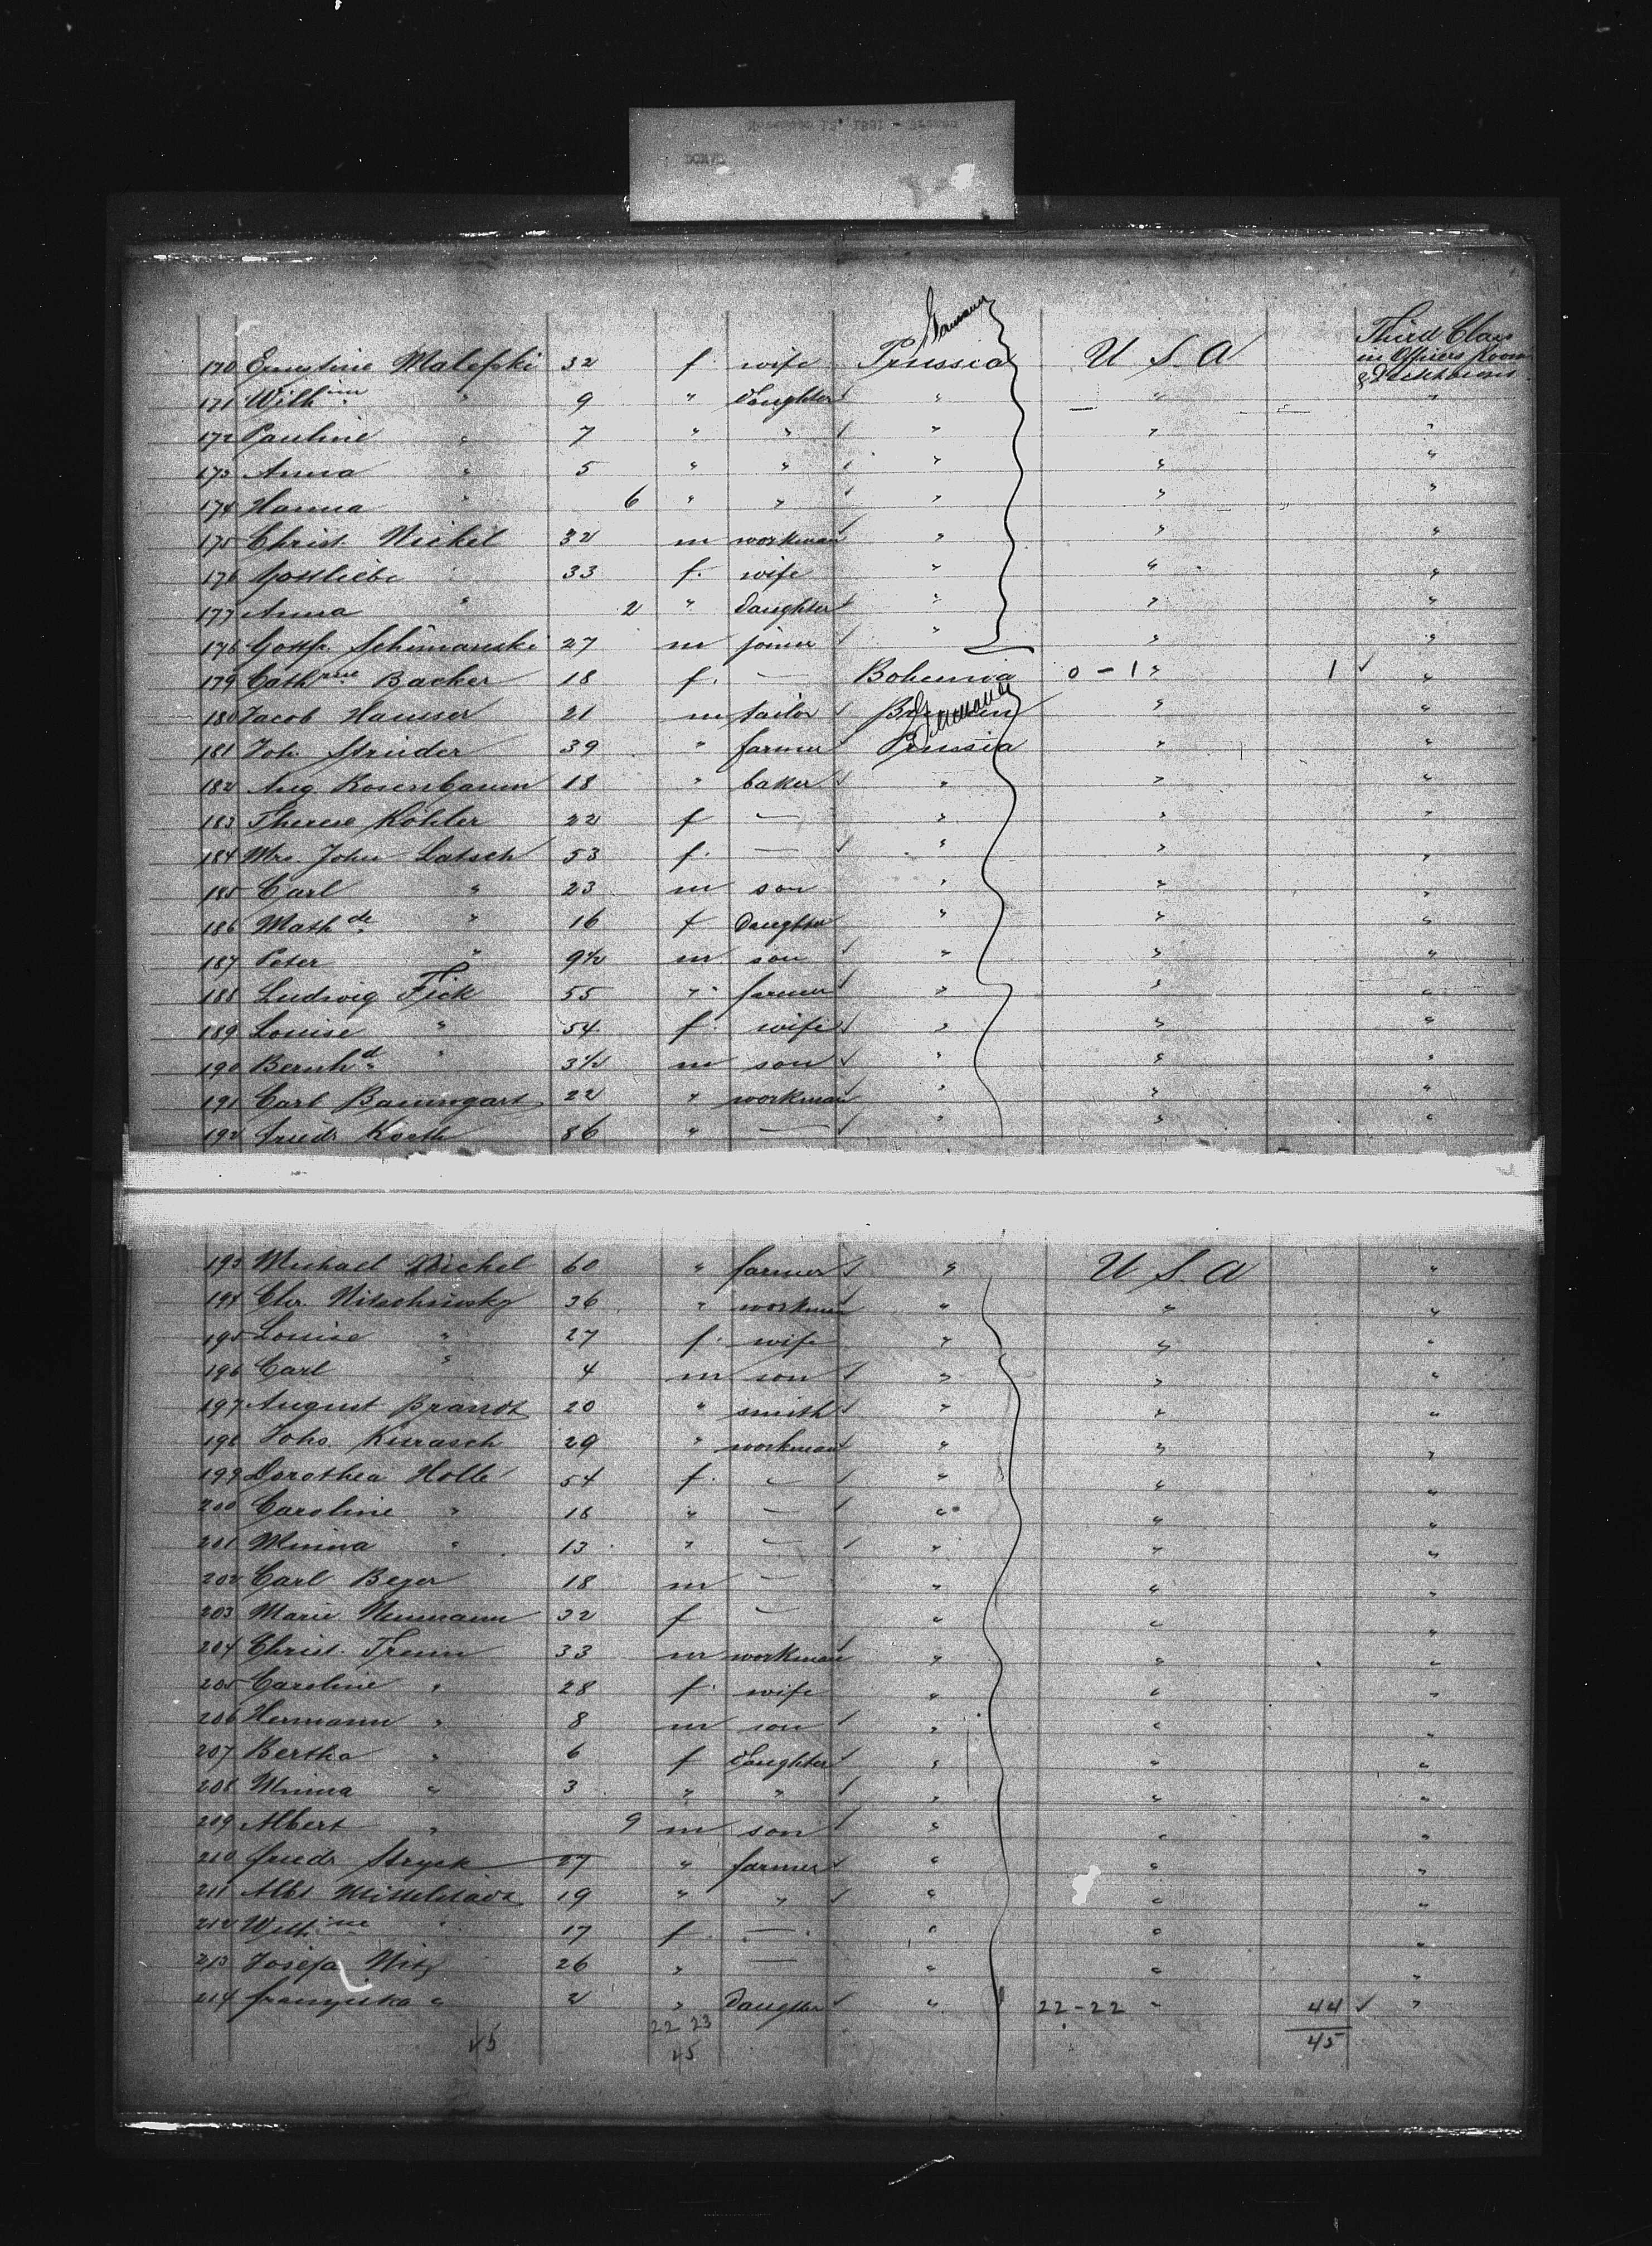 Germany
Third Class
170 Ernestine Malefski 32 f wife Prussia U S. A in Officers Room
171 Wilhine " 9 " daughter " " & Deckhouses
172 Pauline " 7 " " " " "
173 Anna " 5 " " " " "
174 Hanna " 6 " " " " "
175 Christ. Nickel 32 m workman " " "
176 Gottliebe " 33 f. wife " " "
177 Anna " 2 " daughter " " "
178 Gottfr. Schimanski 27 m joiner " " "
179 Cathrine Backer 18 f. — Bohemia 0 - 1 " 1 ✓ "
180 Jacob Hausser 21 m tailor Germany " "
181 Joh. Strüder 39 " farmer Prussia " "
182 Aug Rosenbaum 18 " baker " " "
183 Therese Köhler 22 f — " " "
184 Mrs. John Latsch 53 f. — " " "
185 Carl " 23 m son " " "
186 Mathde " 16 f daughter " " "
187 Peter " 9½ m son " " "
188 Ludwig Fick 55 " farmer " " "
189 Louise " 54 f. wife " " "
190 Bernhd " 3½ m son " " "
191 Carl Baumgart 22 " workman " " "
192 Friedr Korth 86 " — " " "
193 Michael Michel 60 " farmer " U S. A "
194 Chr. 36 " workman " " "
195 Louise " 27 f. wife " " "
196 Carl " 4 m son " " "
197 August Brandt 20 " smith " " "
198 Johs. Kurasch 29 " workman " " "
199 Dorothea Holle 54 f. — " " "
200 Caroline " 18 " — " " "
201 Minna " 13 " — " " "
202 Carl Beyer 18 m — " " "
203 Marie Neumann 32 f — " " "
204 Christ. Fremm 33 m workman " " "
205 Caroline " 28 f. wife " " "
206 Hermann " 8 m son " " "
207 Bertha " 6 f daughter " " "
208 Minna " 3 " " " " "
209 Albert " 9 m son " " "
210 Friedr Stryck 27 " farmer " " "
211 Albt Mittelstädt 19 " " " " "
212 Wilhine " 17 f. — " " "
213 Josefa Nitz 26 " — " " "
214 Franziska " 2 " daughter " 22-22 " 44 ✓ "
45 22 23 45
45